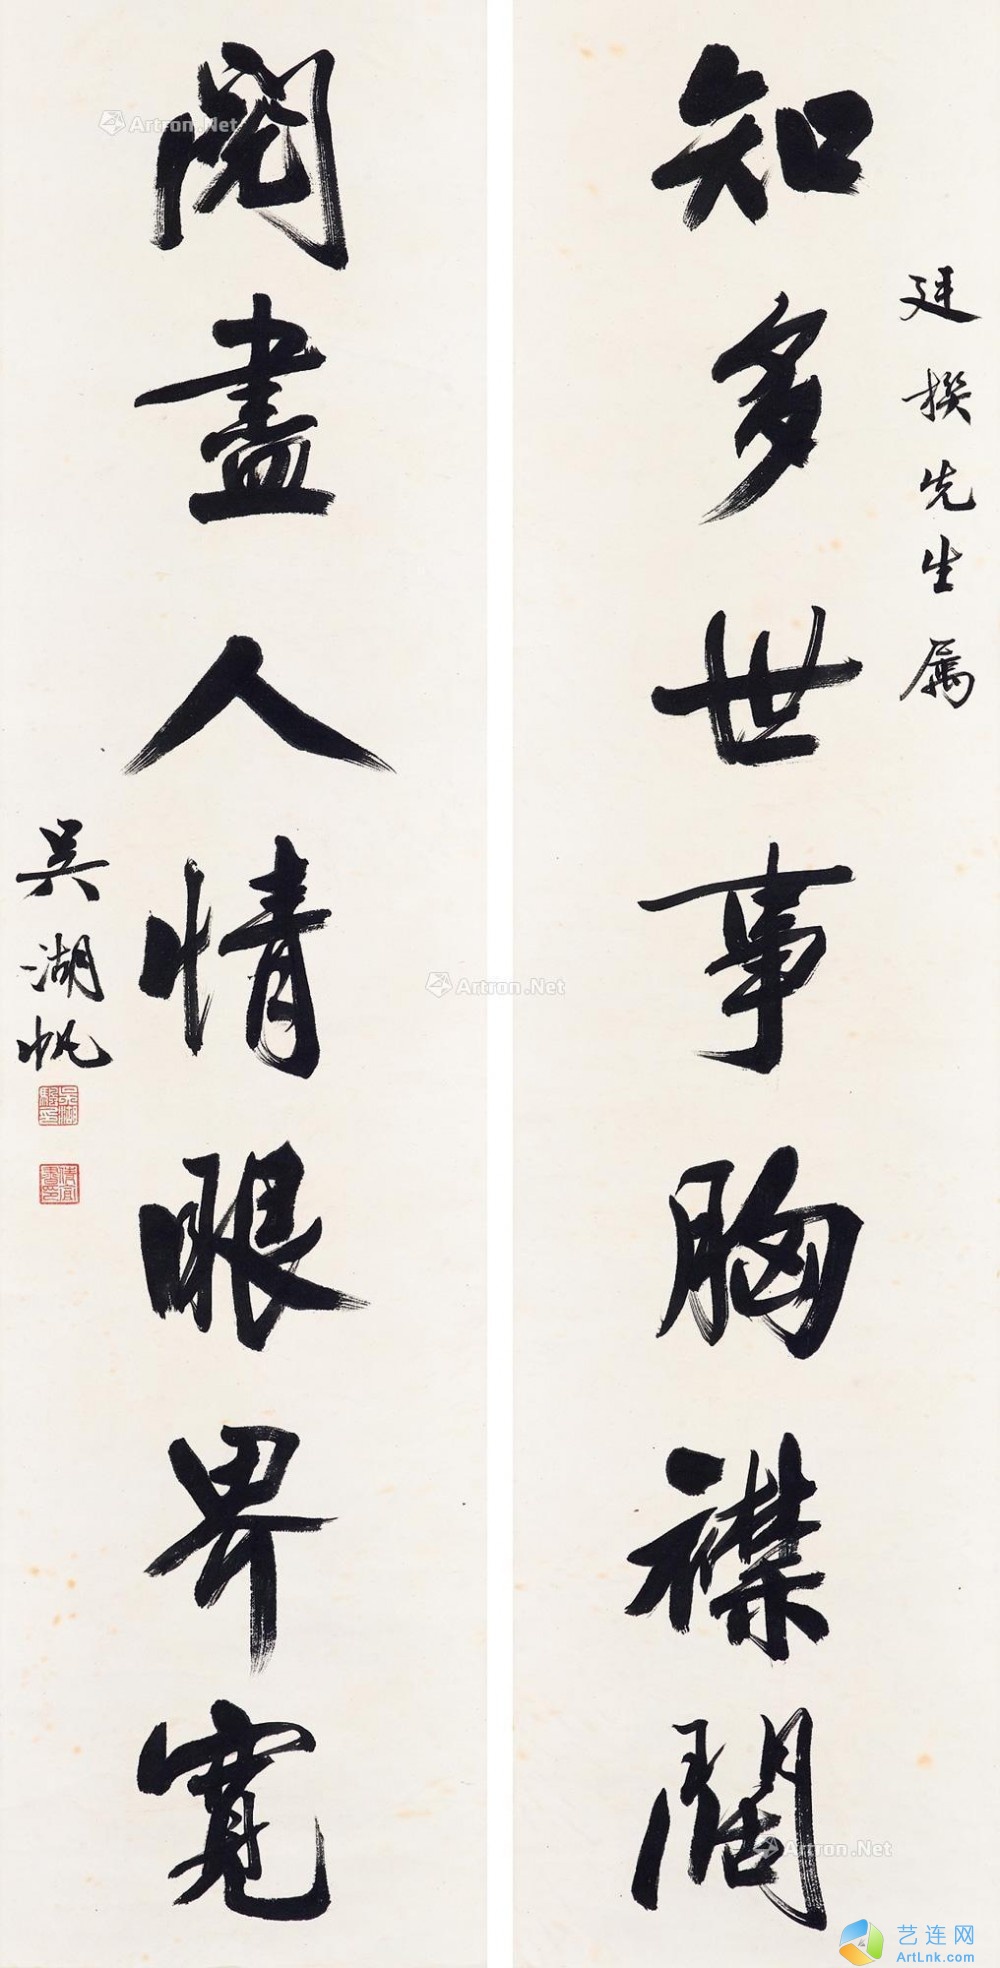 廷揆先生属
知多世事胸襟阔
閱盡人情眼界寬
吴湖帆
Artron.Net
Artron.Net
Artron.Net
艺连网
ArtLnk.com